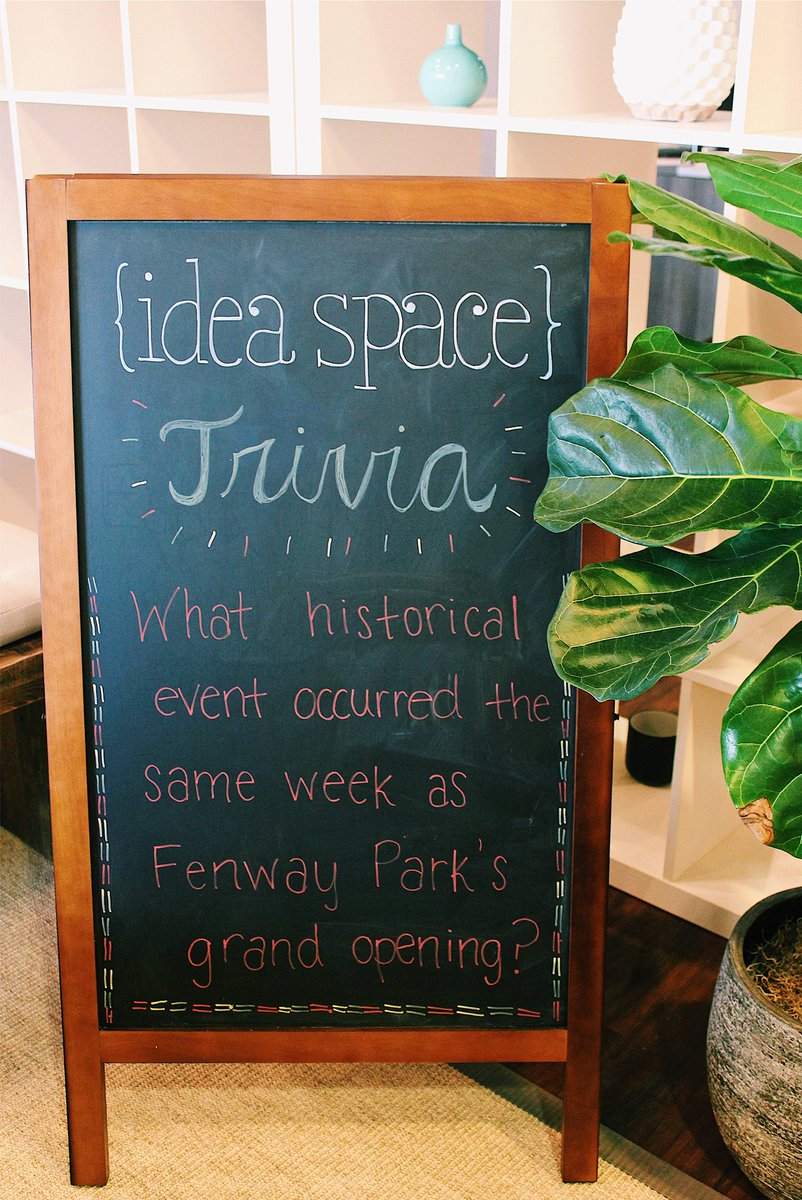 {idea space}
Trivia
What historical
event occurred the
same week as
Fenway Park's
grand opening?